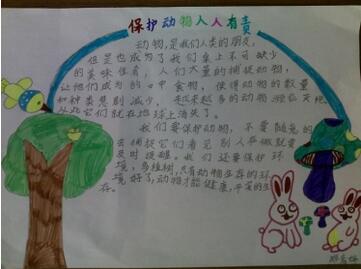 保护动物人人有责
动物,是我们人类的朋友,
但是也成为了我们桌上不可缺少
的美味佳肴,人们大量的捕捉动物,
让他们成为的口中食物,使得动物的数量
和种类急剧减少,越来越多的动物濒临灭绝
从此它们就在地球上消失了。
我们要保护动物,不要随意的
去捕捉它们看见别人乱做就要
及时提醒。我们还要保护环
境,多植树,只有动物生存的环
境好了,动物才能健康,平安的生
存。